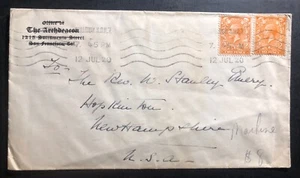 The Archdeacon
1215 Sacramento Street
San Francisco, Cal.
12 JUL 20
12 JUL 20
To
The Rev. W. Stanley Emery.
Hopkinton
New Hampshire
U.S.A